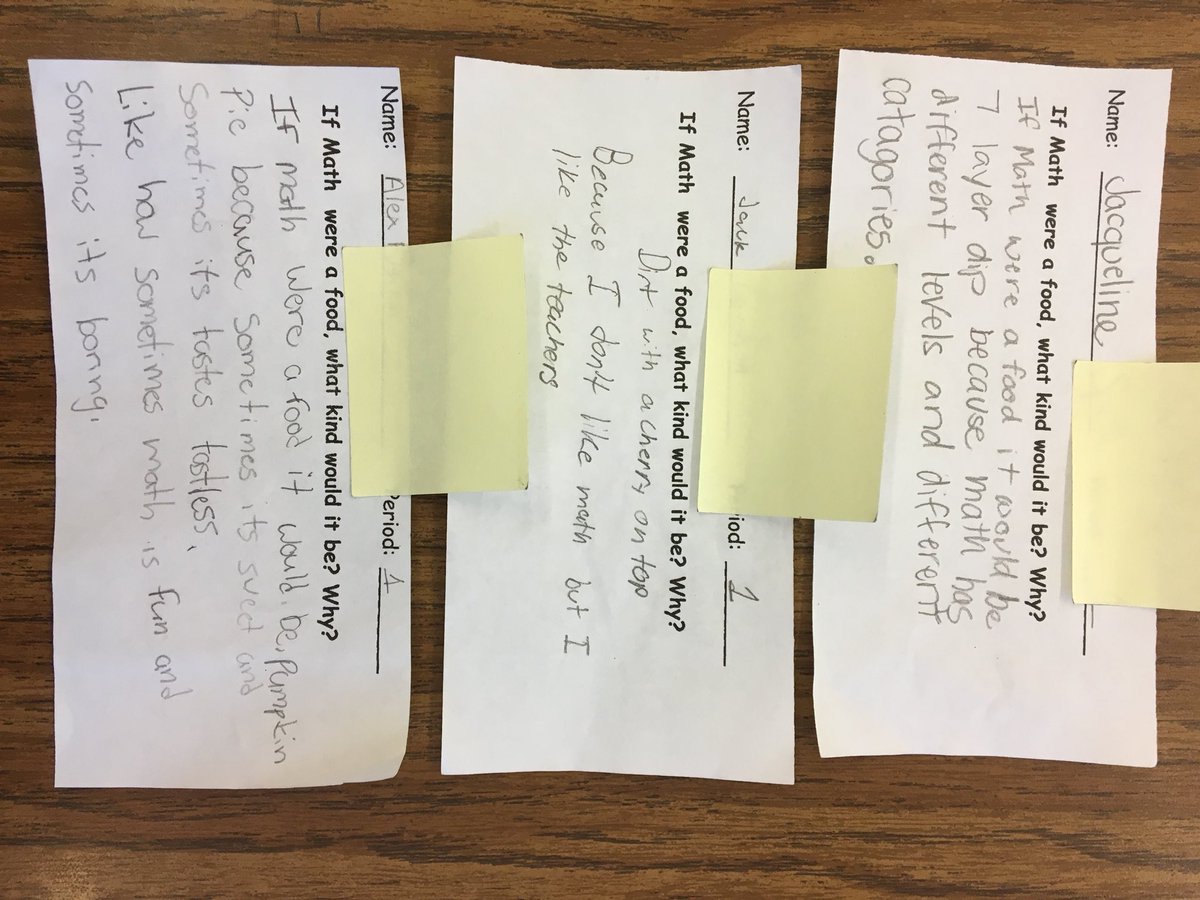 Name: Jacqueline
If Math were a food, what kind would it be? Why?
If Math were a food it would be
7 layer dip because math has
different levels and different
catagories.
Name: Jack iod: 1
If Math were a food, what kind would it be? Why?
Dirt with a cherry on top
Because I don't like math but I
like the teachers
Name: Alex Period: 1
If Math were a food, what kind would it be? Why?
If math were a food it would be, Pumpkin
Pie because sometimes its sweet and
Sometimes its tastes tastless,
Like how sometimes math is fun and
Sometimes its boring.